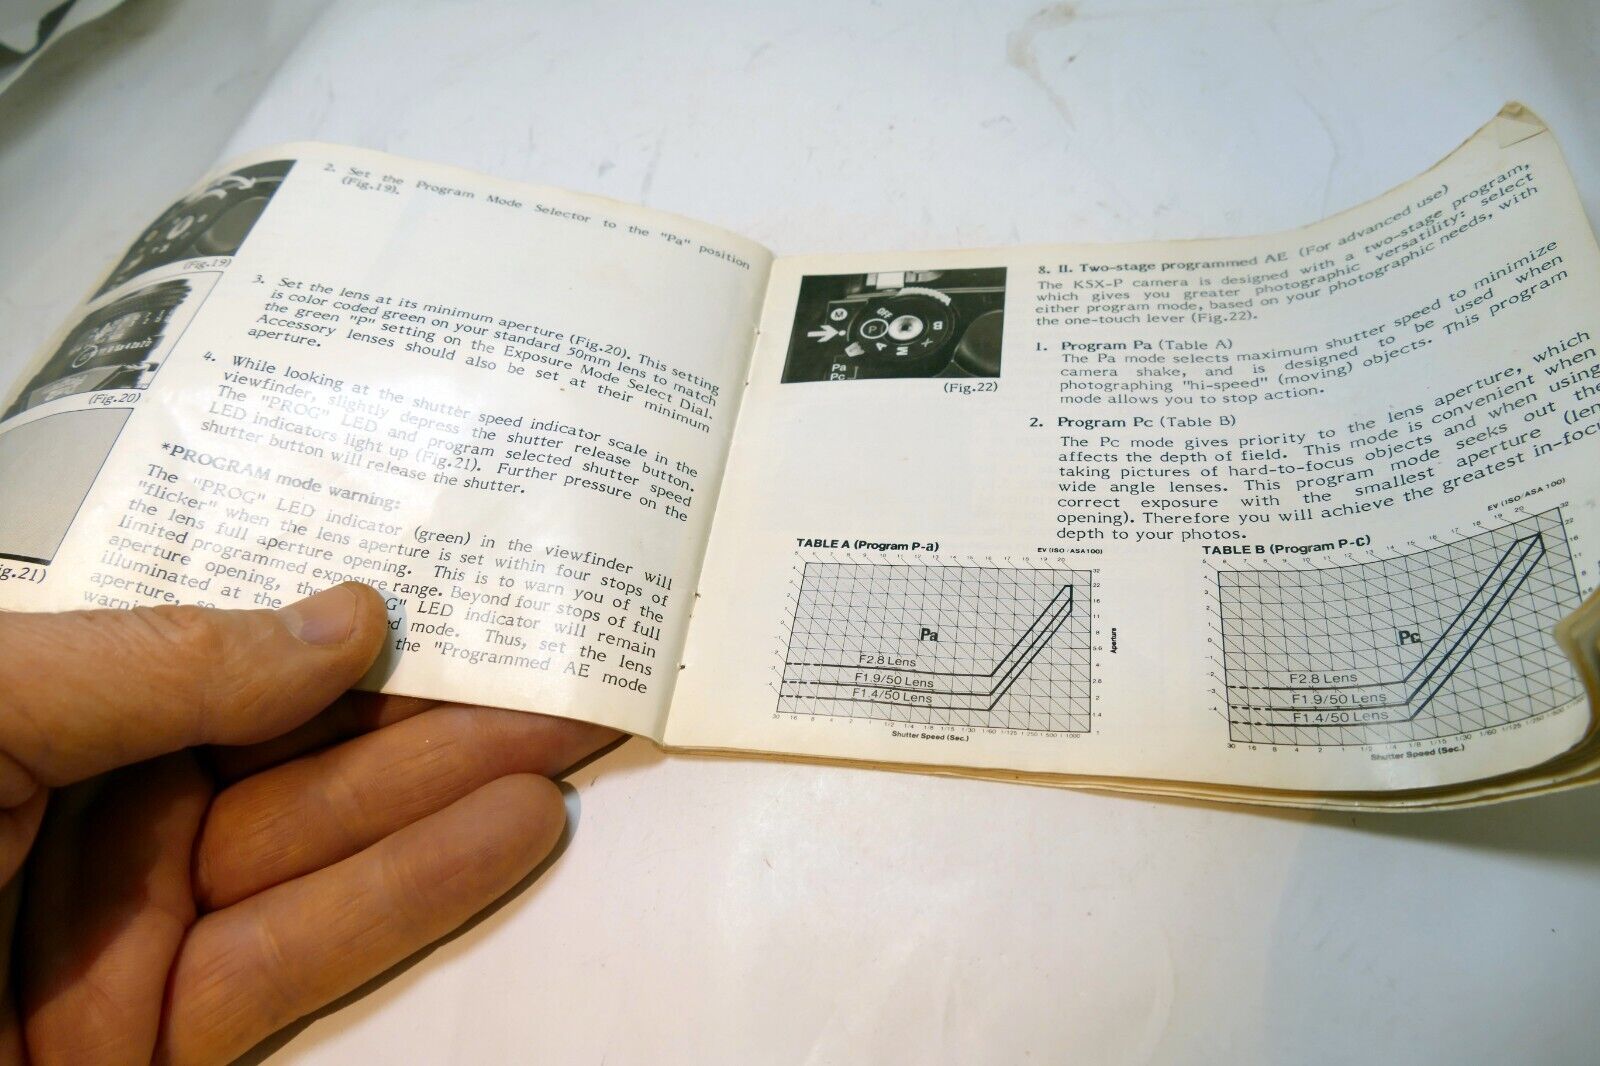 (Fig.19)
(Fig.20)
ig.21)
2. Set the Program Mode Selector to the "Pa" position
(Fig.19).
3. Set the lens at its minimum aperture (Fig.20). This setting
is color coded green on your standard 50mm lens to match
the green "P" setting on the Exposure Mode Select Dial.
Accessory lenses should also be set at their minimum
aperture.
4. While looking at the shutter speed indicator scale in the
viewfinder, slightly depress the shutter release button.
The "PROG" LED and program selected shutter speed
LED indicators light up (Fig.21). Further pressure on the
shutter button will release the shutter.
*PROGRAM mode warning:
The "PROG" LED indicator (green) in the viewfinder will
"flicker" when the lens aperture is set within four stops of
the lens full aperture opening. This is to warn you of the
limited programmed exposure range. Beyond four stops of full
aperture opening, the G" LED indicator will remain
illuminated at the ed mode. Thus, set the lens
aperture, so the "Programmed AE mode
warni
OFF
M
P
A
B
M
X
Pa
Pc
(Fig.22)
8. II. Two-stage programmed AE (For advanced use)
The KSX-P camera is designed with a two-stage program,
which gives you greater photographic versatility: select
either program mode, based on your photographic needs, with
the one-touch lever (Fig.22).
1. Program Pa (Table A)
The Pa mode selects maximum shutter speed to minimize
camera shake, and is designed to be used when
photographing "hi-speed" (moving) objects. This program
mode allows you to stop action.
2. Program Pc (Table B)
The Pc mode gives priority to the lens aperture, which
affects the depth of field. This mode is convenient when
taking pictures of hard-to-focus objects and when using
wide angle lenses. This program mode seeks out the
correct exposure with the smallest aperture (len
opening). Therefore you will achieve the greatest in-focu
depth to your photos.
TABLE A (Program P-a)
EV (ISO/ASA100)
Pa
F2.8 Lens
F1.9/50 Lens
F1.4/50 Lens
32
22
16
11
8
5.6
4
2.8
2
1.4
1
Aperture
30 16 8 4 2 1 1/2 1/4 1/8 1/15 1/30 1/60 1/125 1/250 1/500 1/1000
Shutter Speed (Sec.)
TABLE B (Program P-C)
EV (ISO/ASA 100)
Pc
F2.8 Lens
F1.9/50 Lens
F1.4/50 Lens
32
22
16
30 16 8 4 2 1 1/2 1/4 1/8 1/15 1/30 1/60 1/125 1/250 1/500
Shutter Speed (Sec.)